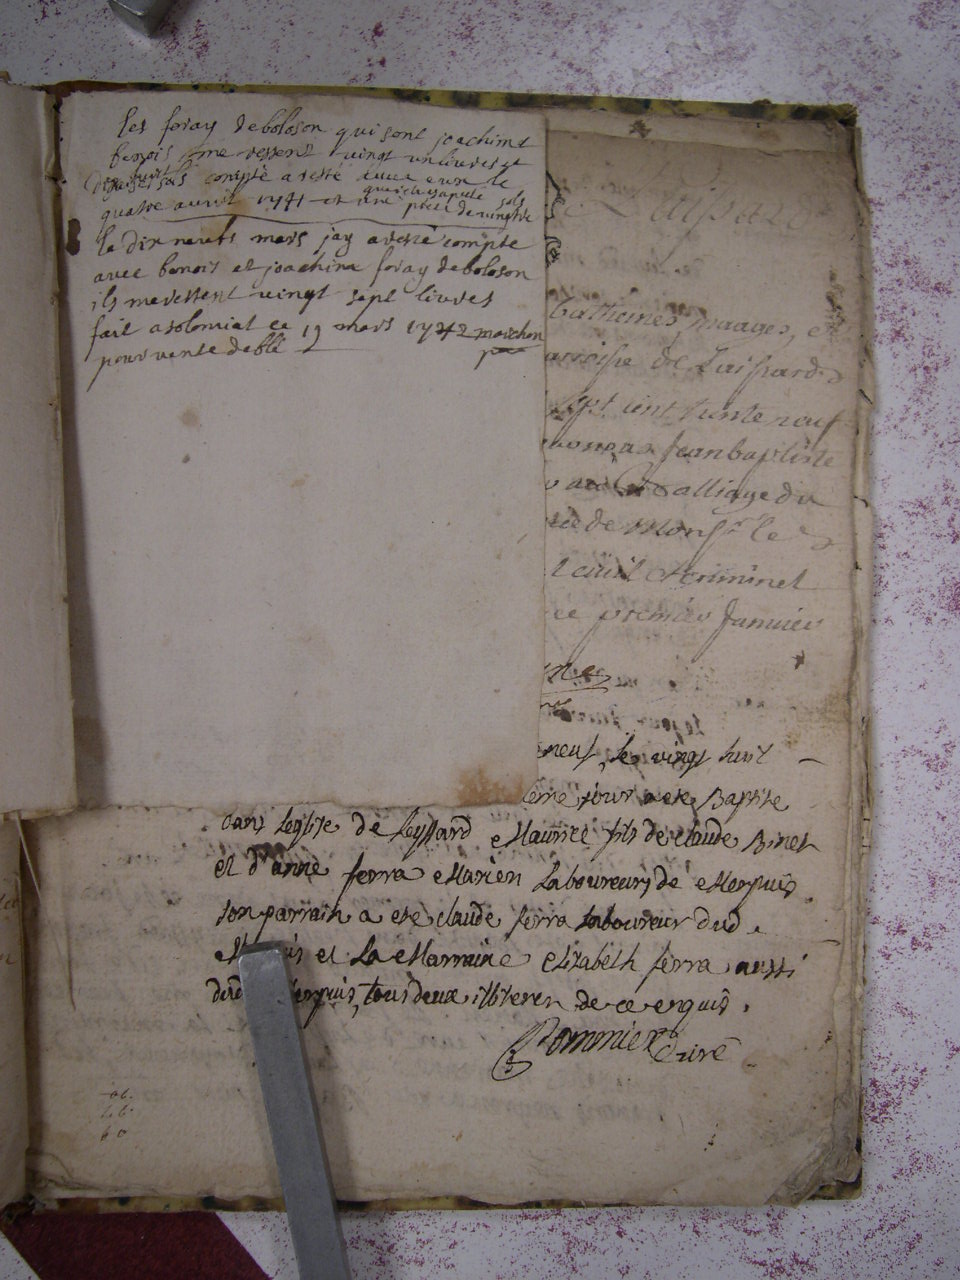 les foray deboloson qui sont joachimt
benois me restent vingt un livres et
dix huit sols compte aresté avec eux le
quatre avril 1741 et une piece de vingt
le dix neufs mars jay aresté compte
avec benois et joachim foray deboloson
ils me restent vingt sept livres
fait a solomiat ce 19 mars 1742 morchon
pour vente deblé
mariages, et
paroisse de Laissard
sept cent trente neuf
Jean baptiste
alliage du
de Mons.r le
civil et criminel
ce premier Janvier
neuf, le vingt huit
jour a ete Baptisé
dans leglise de leyssard Maurice fils de claude Binet
et d'anne ferra Marien Laboureurs de Merpuis
son parrain a eté claude ferra laboureur dud.
et La Marraine elizabeth ferra aussi
Merpuis, tous deux illiteren de ce enquis.
Pommier curé